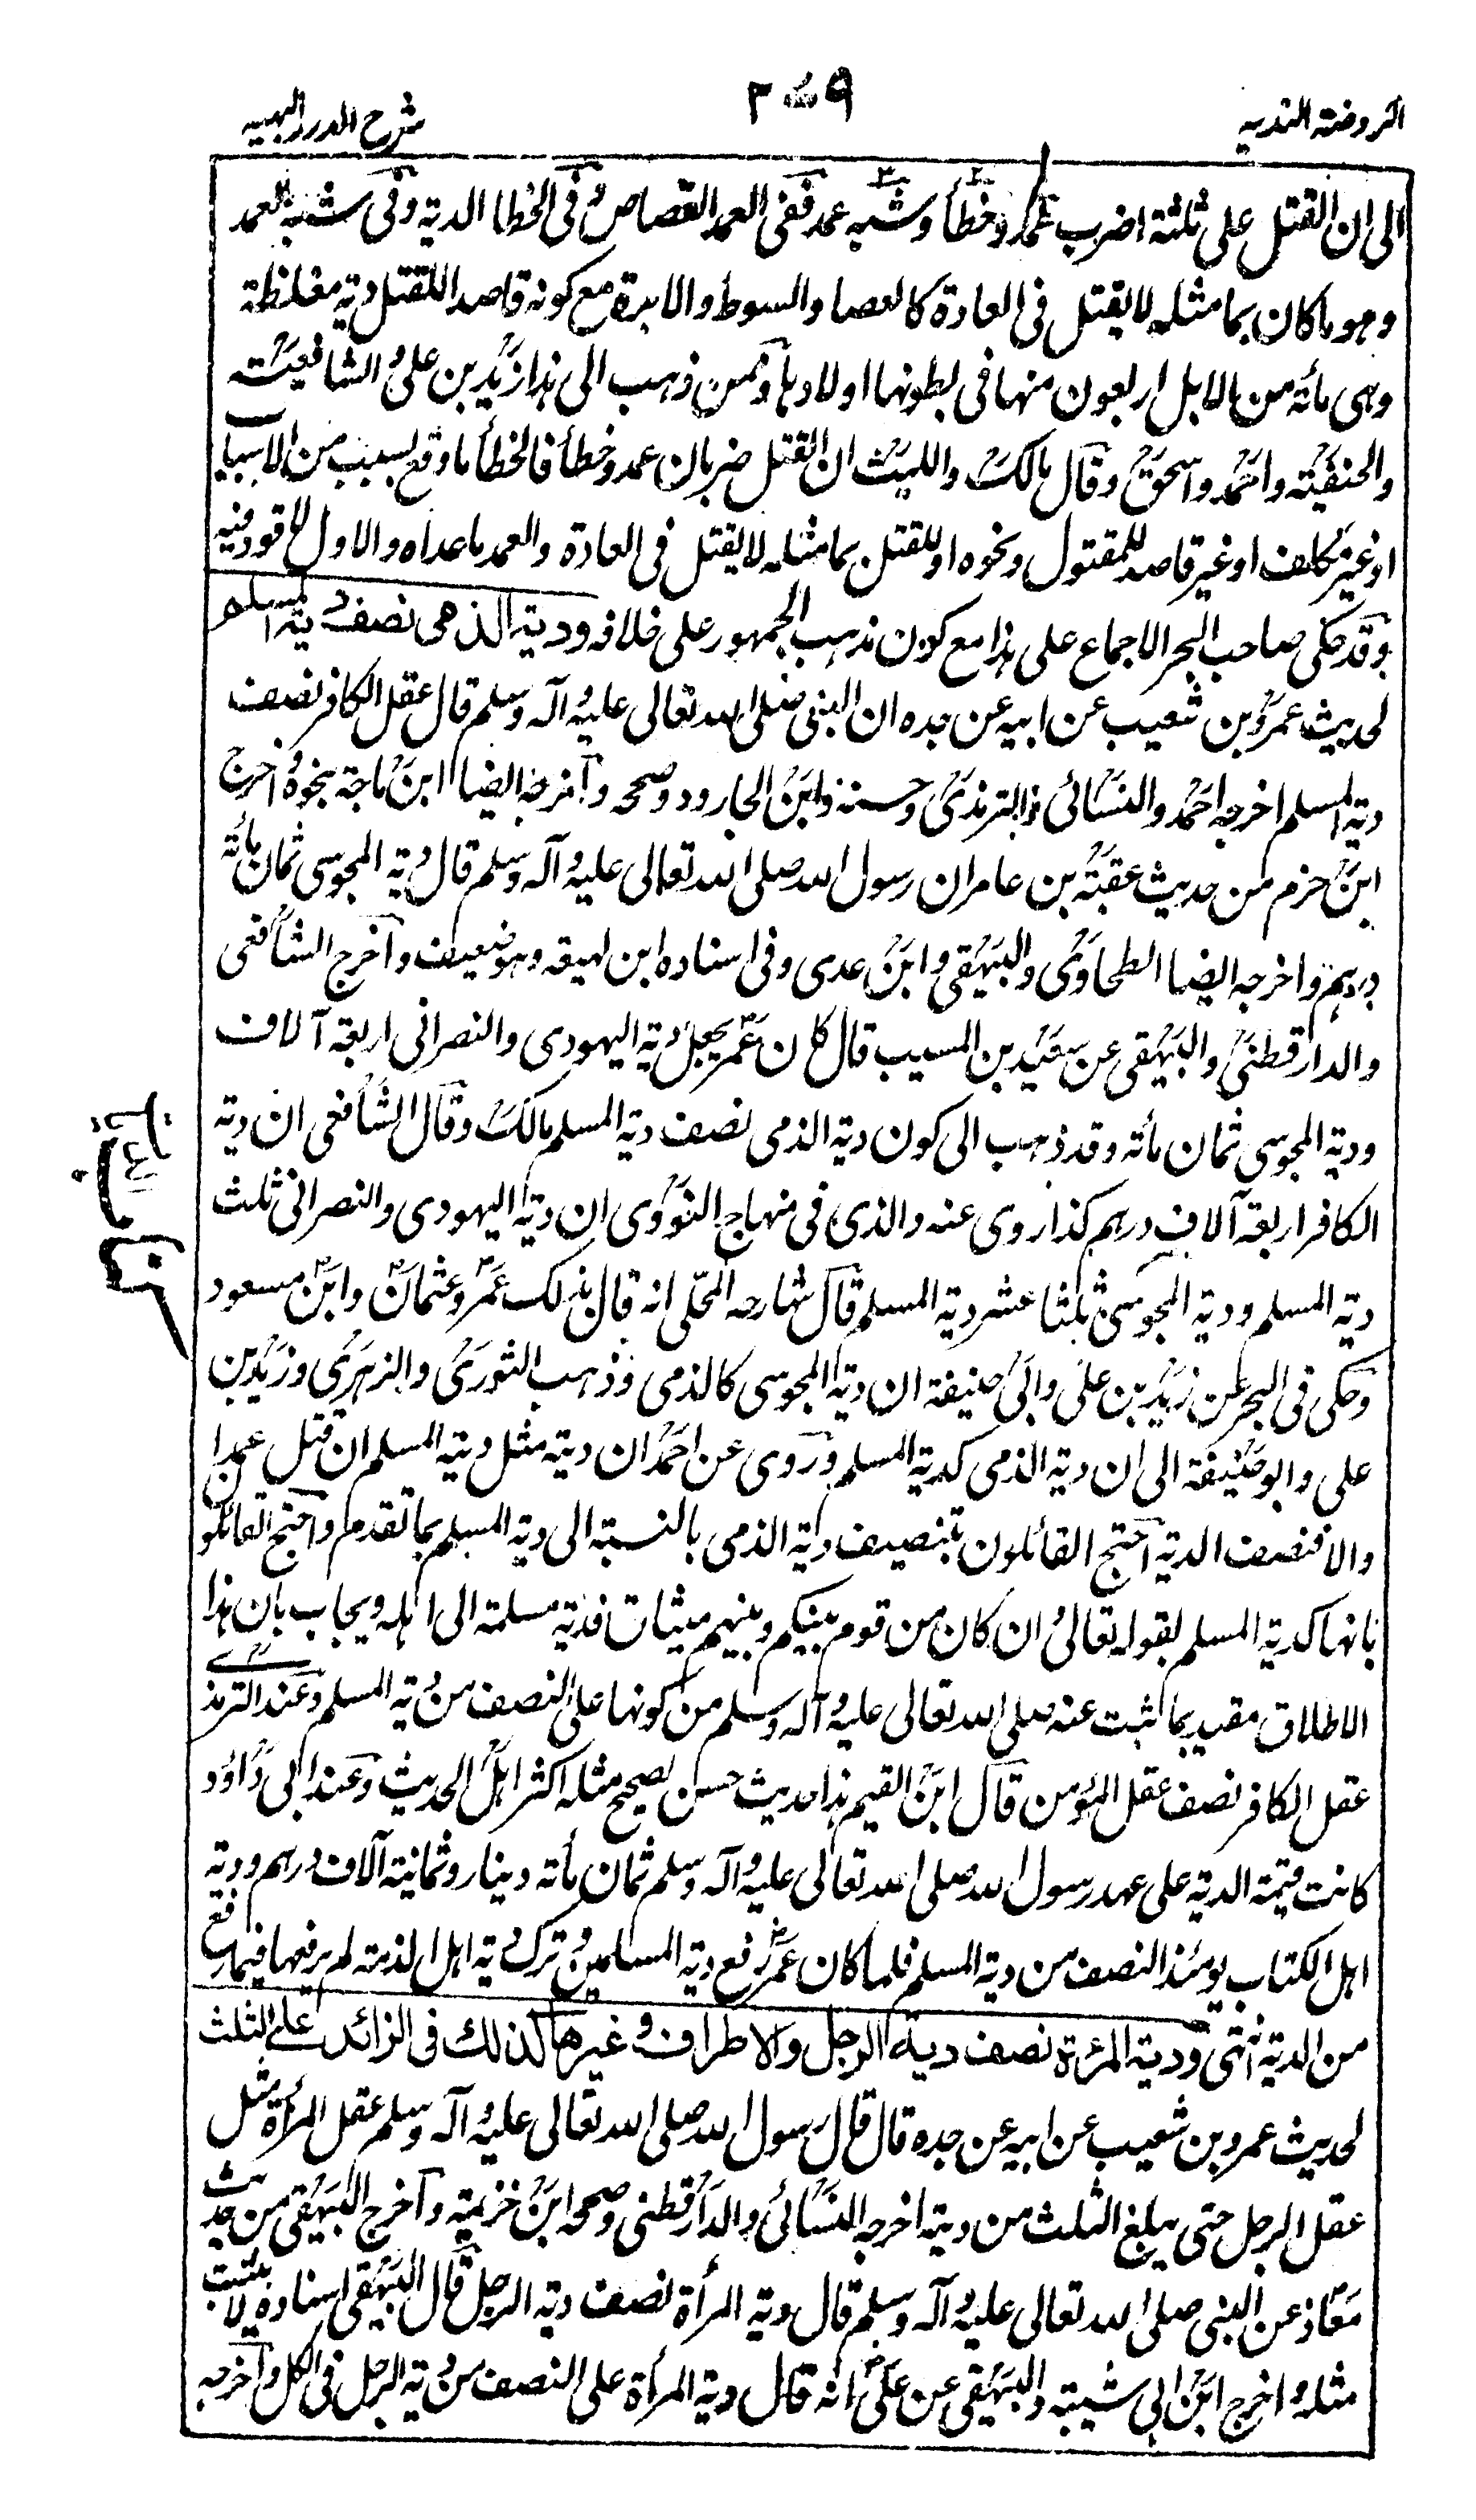 الروضة الندية
٣٧٩
شرح الدرر البهيه
الى ان القتل على ثلثة اضرب عمد وخطأ وشبه عمد ففى العمد القصاص وفى الخطا الدية وفى شبه العمد
وهو ما كان بما مثله لا يقتل فى العادة كالعصا والسوط والابرة مع كونه قاصدا للقتل دية مغلظة
وهى مائة من الابل اربعون منها فى بطونها اولادها وممن ذهب الى هذا زيد بن على والشافعية
والحنفية واحمد واسحق وقال مالك والليث ان القتل ضربان عمد وخطأ فالخطأ ما وقع بسبب من الاسباب
او غير مكلف او غير قاصد للمقتول ونحوه او للقتل بما مثله لا يقتل فى العادة والعمد ما عداه والاول لا قود فيه
وقد حكى صاحب البحر الاجماع على هذا مع كون مذهب الجمهور على خلافه ودية الذمى نصف دية المسلم
لحديث عمرو بن شعيب عن ابيه عن جده ان النبى صلى الله تعالى عليه وآله وسلم قال عقل الكافر نصف
دية المسلم اخرجه احمد والنسائى والترمذى وحسنه وابن الجارود وصححه واخرجه ايضا ابن ماجة بنحوه واخرج
ابن حزم من حديث عقبة بن عامر ان رسول الله صلى الله تعالى عليه وآله وسلم قال دية المجوسى ثمان مائة
درهم واخرجه ايضا الطحاوى والبيهقى وابن عدى وفى اسناده ابن لهيعة وهو ضعيف واخرج الشافعى
والدارقطنى والبيهقى عن سعيد بن المسيب قال كان عمر يجعل دية اليهودى والنصرانى اربعة آلاف
ودية المجوسى ثمان مائة وقد ذهب الى كون دية الذمى نصف دية المسلم مالك وقال الشافعى ان دية
الكافر اربعة آلاف درهم كذا روى عنه والذى فى منهاج النووى ان دية اليهودى والنصرانى ثلث
دية المسلم ودية المجوسى ثلثا عشر دية المسلم قال شارحه المحلى انه قال بذلك عمر وعثمان وابن مسعود
وحكى فى البحر عن زيد بن على وابى حنيفة ان دية المجوسى كالذمى وذهب الثورى والزهرى وزيد بن
على وابو حنيفة الى ان دية الذمى كدية المسلم وروى عن احمد ان دية مثل دية المسلم ان قتل عمدا
والا فنصف الدية احتج القائلون بتنصيف دية الذمى بالنسبة الى دية المسلم بما تقدم واحتج القائلو
بانها كدية المسلم بقوله تعالى وان كان من قوم بينكم وبينهم ميثاق فدية مسلمة الى اهله ويجاب بان هذا
الاطلاق مقيد بما ثبت عنه صلى الله تعالى عليه وآله وسلم من كونها على النصف من دية المسلم وعند الترمذى
عقل الكافر نصف عقل المؤمن قال ابن القيم هذا حديث حسن يصحح مثله اكثر اهل الحديث وعند ابى داؤد
كانت قيمة الدية على عهد رسول الله صلى الله تعالى عليه وآله وسلم ثمان مائة دينار وثمانية آلاف درهم ودية
اهل الكتاب يومئذ النصف من دية المسلم فلما كان عمر رفع دية المسلمين وترك دية اهل الذمة لم يرفعها فيما رفع
من الدية انتهى ودية المرءة نصف دية الرجل والاطراف وغيرها كذلك فى الزائد على الثلث
لحديث عمرو بن شعيب عن ابيه عن جده قال قال رسول الله صلى الله تعالى عليه وآله وسلم عقل المرأة مثل
عقل الرجل حتى يبلغ الثلث من ديته اخرجه النسائى والدارقطنى وصححه ابن خزيمة واخرج البيهقى من حديث
معاذ عن النبى صلى الله تعالى عليه وآله وسلم قال دية المرأة نصف دية الرجل قال البيهقى اسناده لا يثبت
مثله واخرج ابن ابى شيبة والبيهقى عن على انه قال دية المرأة على النصف من دية الرجل فى الكل واخرجه